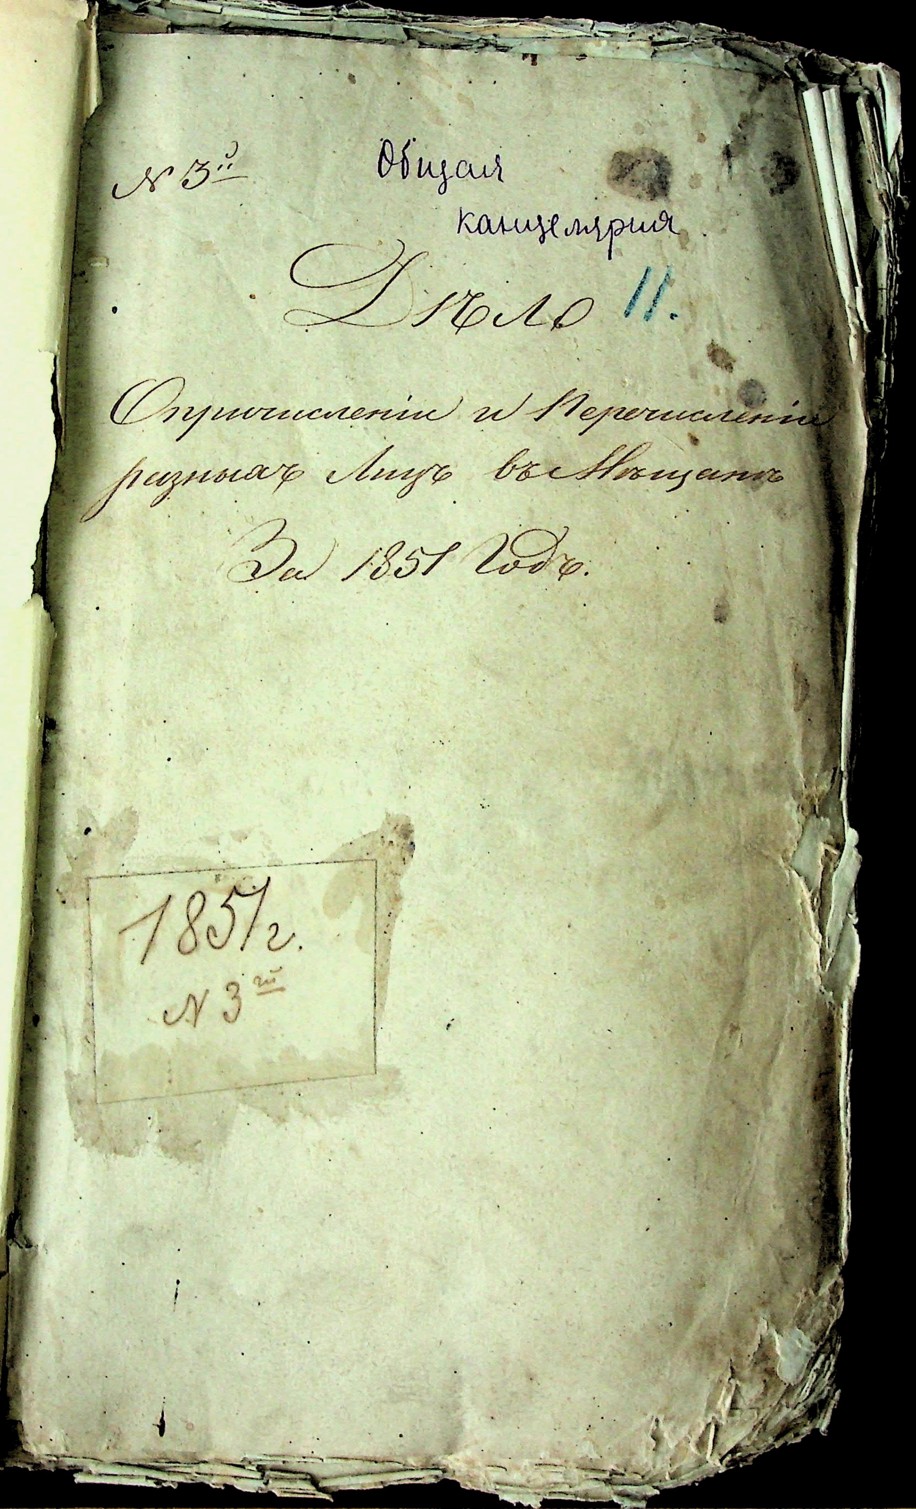 N 3й
Общая
канцелярия
Дѣло 11.
Опричисленіи и Перечисленіи
разныхъ Лицъ въ Мѣщане
За 1851 Годъ.
1851 г.
N 3ій